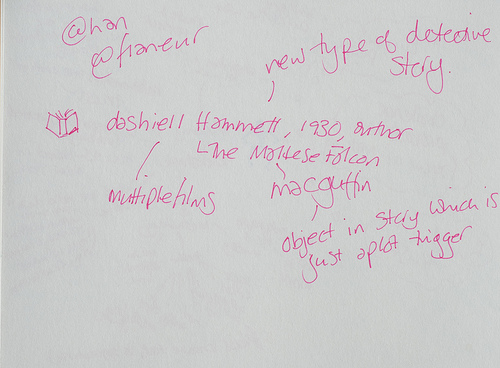 @han
@franeur
new type of detective
story.
dashiell Hammett, 1930, author
The Maltese Falcon
multiple films
macguffin
object in story which is
just a plot trigger